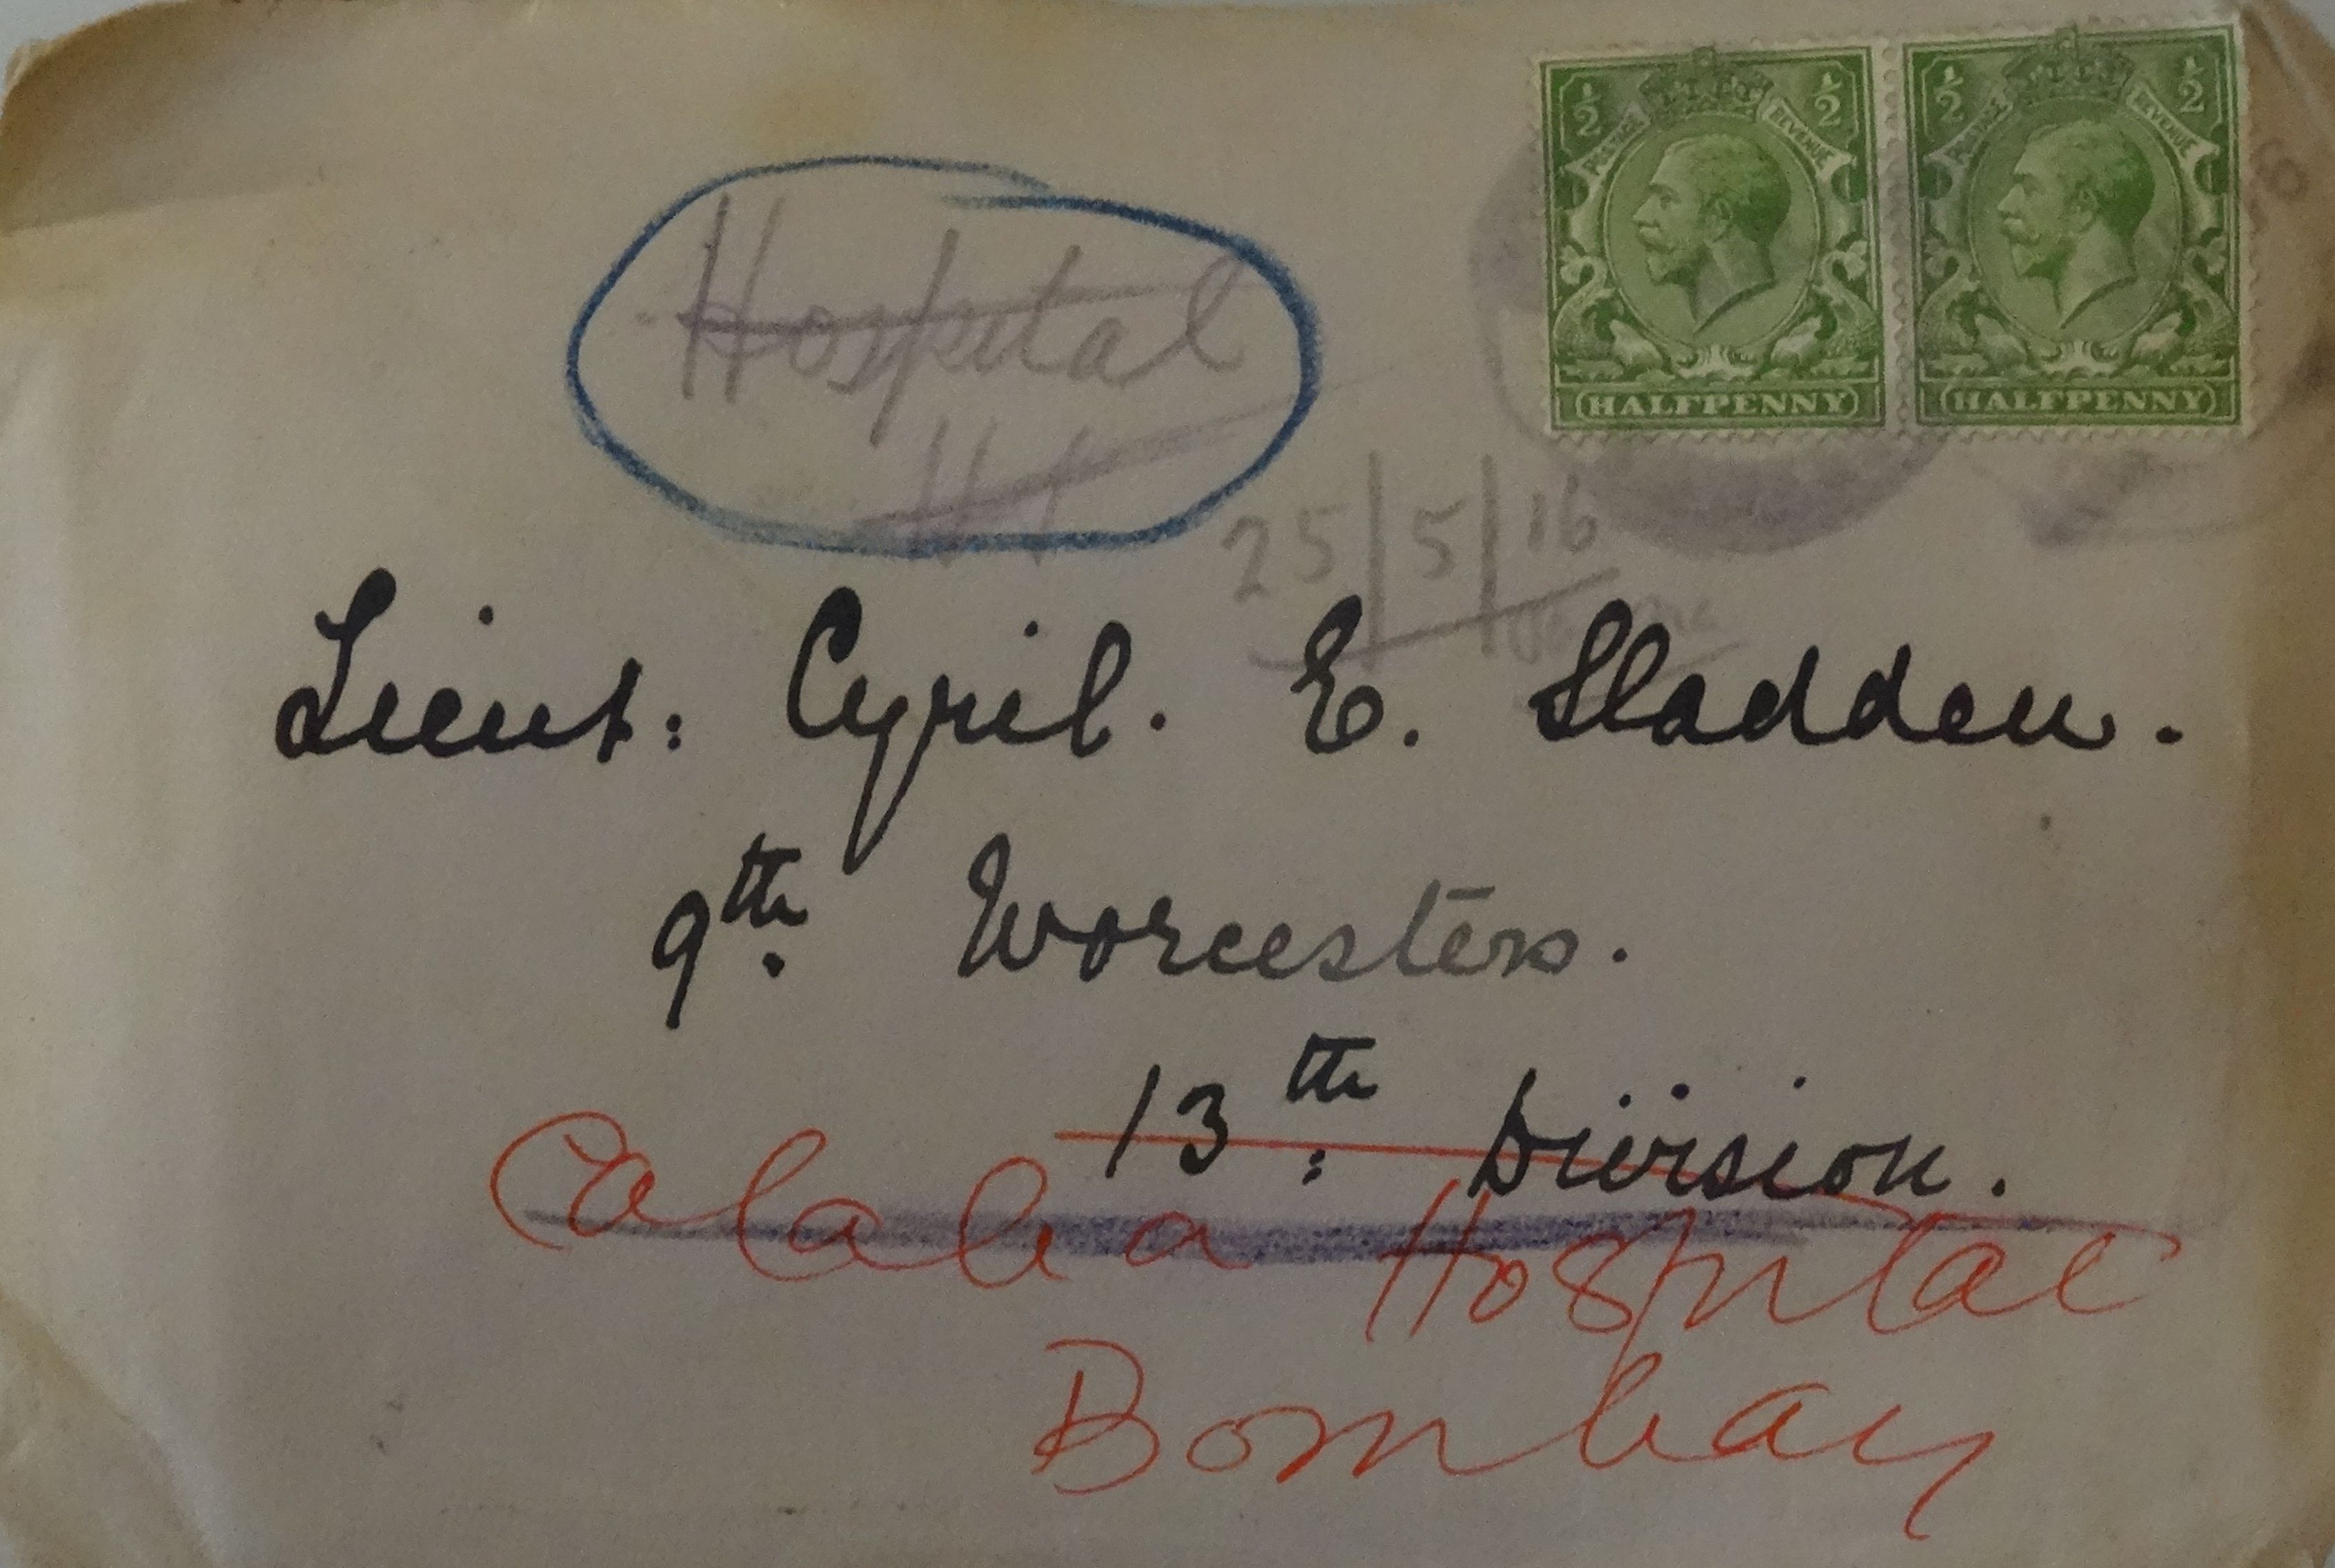 ½ ½ ½ ½
POSTAGE REVENUE POSTAGE REVENUE
HALFPENNY HALFPENNY
Hospital
25/5/16
Lieut: Cyril. E. Sladden.
9th. Worcesters.
13th: Division.
Colaba Hospital
Bombay